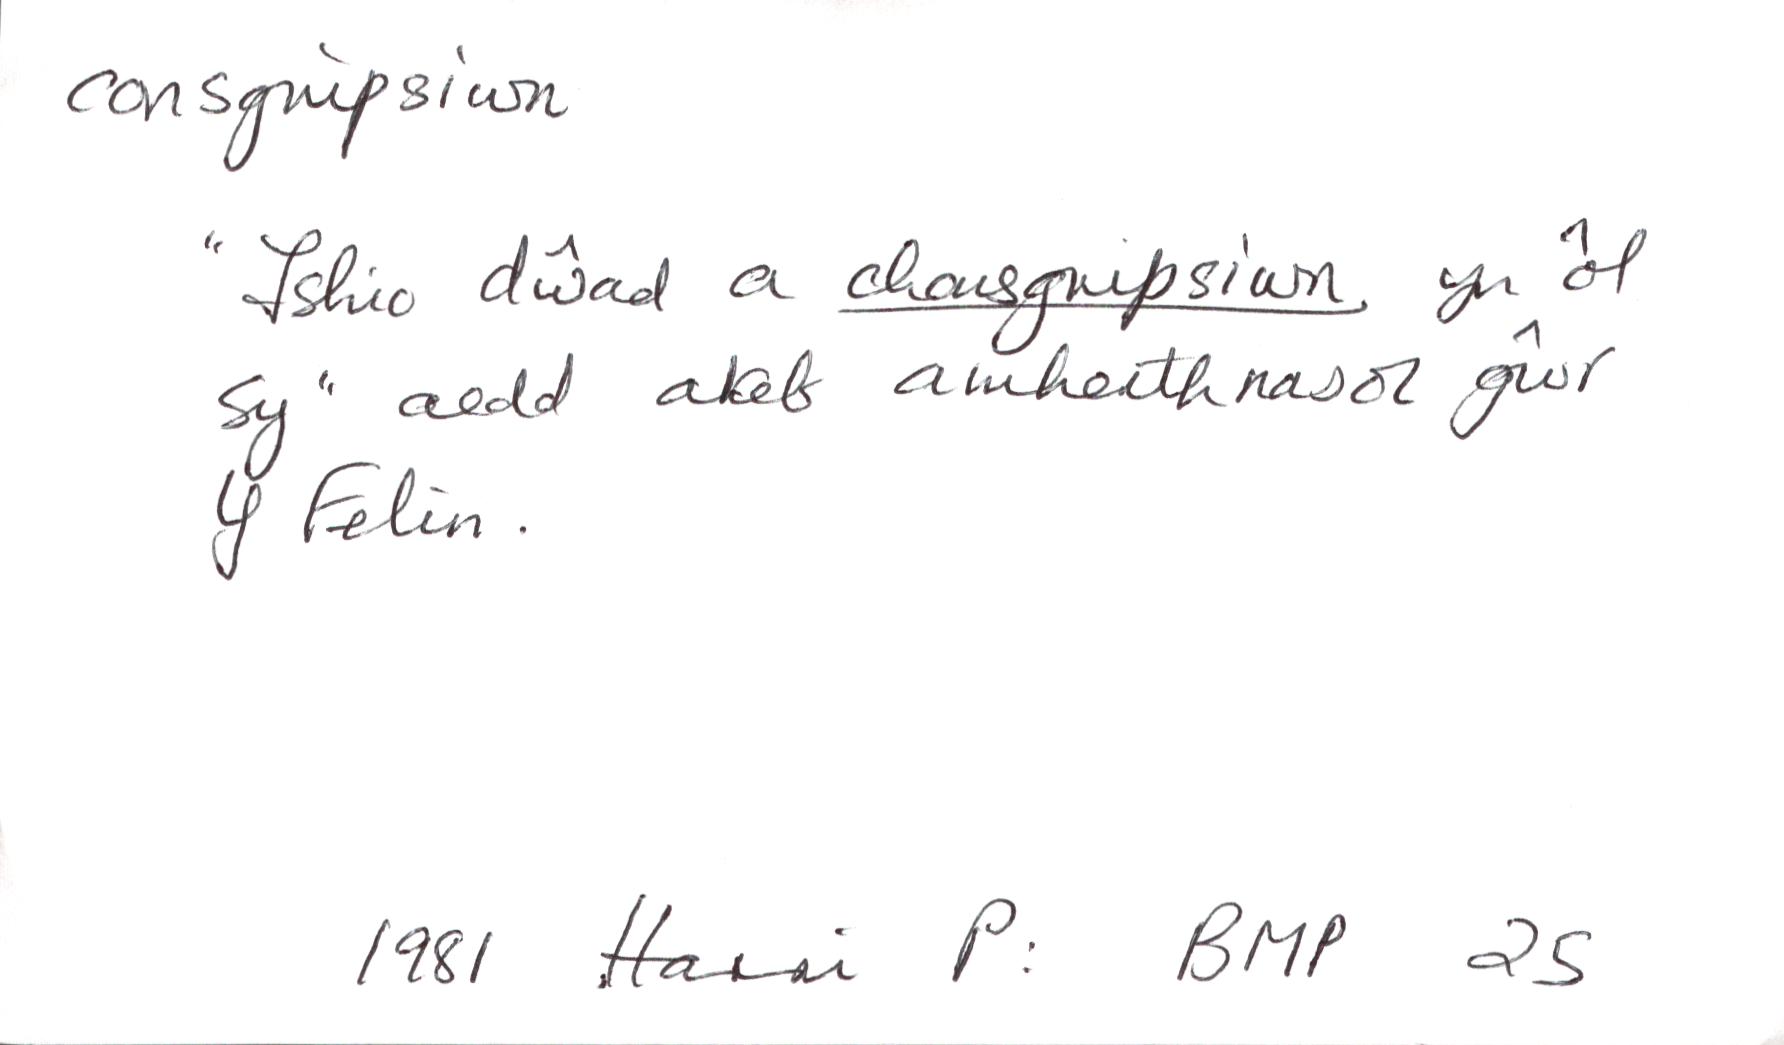 consgripsiwn
"Ishio dŵad a chonsgripsiwn yn ôl
sy" oedd ateb amherthnasol gŵr
Y Felin.
1981 Harri P: BMP 25